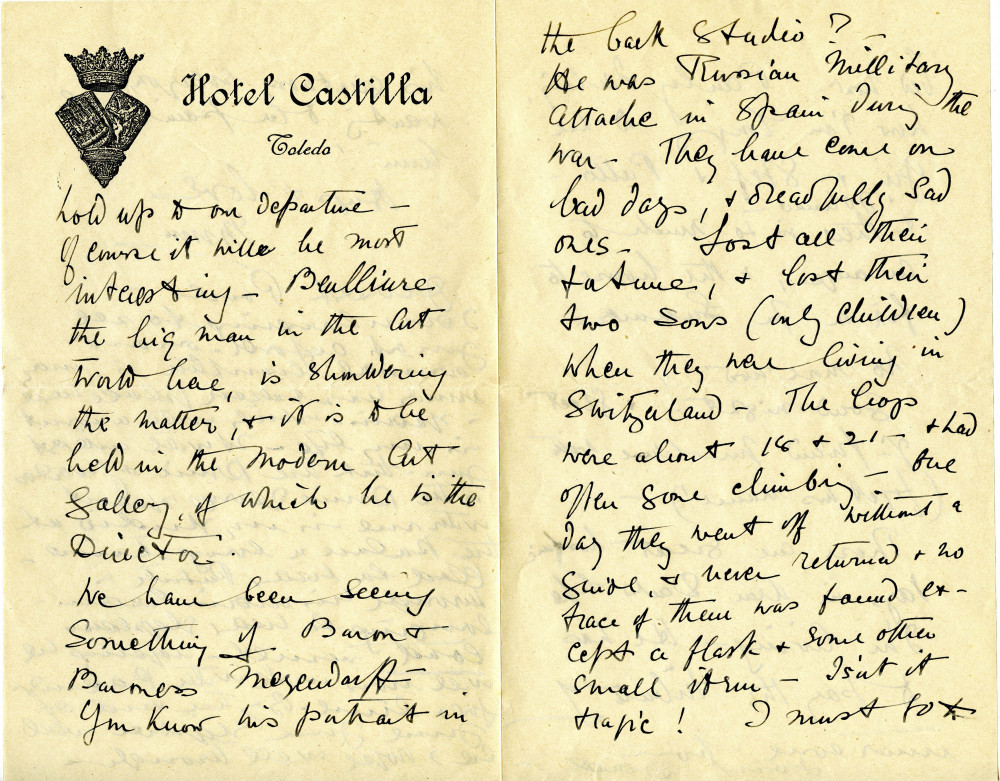 Hotel Castilla
Toledo
hold up to our departure –
Of course it will be most
interesting – Benlliure
the big man in the Art
World here, is shouldering
the matter, & it is to be
held in the Modern Art
Gallery of which he is the
Director.
We have been seeing
Something of Baron &
Baroness Megendorff –
You know his portrait in
the back Studio?
He was Russian Millitary
Attache in Spain during the
war – They have come on
bad days, & dreadfully sad
ones – Lost all their
fortune, & lost their
two Sons (only children)
when they were living in
Switzerland – The boys
were about 18 & 21 – & had
often gone climbing. One
day they went off without a
guide, & never returned & no
trace of them was found ex-
cept a flask & some other
small item – Isn't it
tragic! I must go